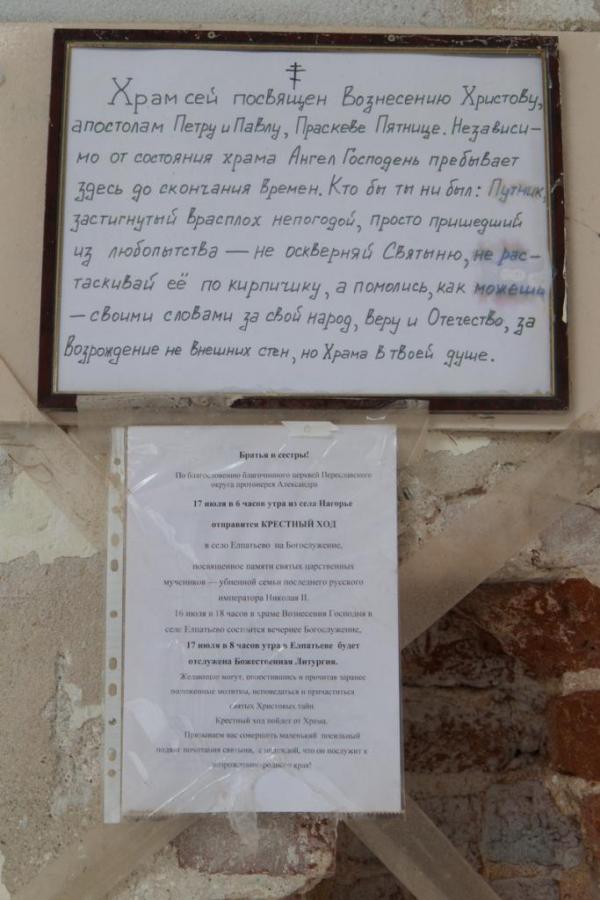 Храм сей посвящен Вознесению Христову,
апостолам Петру и Павлу, Праскеве Пятнице. Независи-
мо от состояния храма Ангел Господень пребывает
здесь до скончания времен. Кто бы ты ни был: Путник,
застигнутый врасплох непогодой, просто пришедший
из любопытства — не оскверняй Святыню, не рас-
таскивай её по кирпичику, а помолись, как можешь
— своими словами за свой народ, веру и Отечество, за
возрождение не внешних стен, но Храма в твоей душе.
Братья и сестры!
По благословению благочинного церквей Переславского
округа протоиерея Александра
17 июля в 6 часов утра из села Нагорье
отправится КРЕСТНЫЙ ХОД
в село Елпатьево на Богослужение,
посвященное памяти святых царственных
мучеников — убиенной семьи последнего русского
императора Николая II.
16 июля в 18 часов в храме Вознесения Господня в
селе Елпатьево состоится вечернее Богослужение,
17 июля в 8 часов утра в Елпатьеве будет
отслужена Божественная Литургия.
Желающие могут, попостившись и прочитав заранее
положенные молитвы, исповедаться и причаститься
святых Христовых тайн.
Крестный ход пойдет от Храма.
Призываем вас совершить маленький посильный
подвиг почитания святыни, с надеждой, что он послужит к
возрождению родного края!